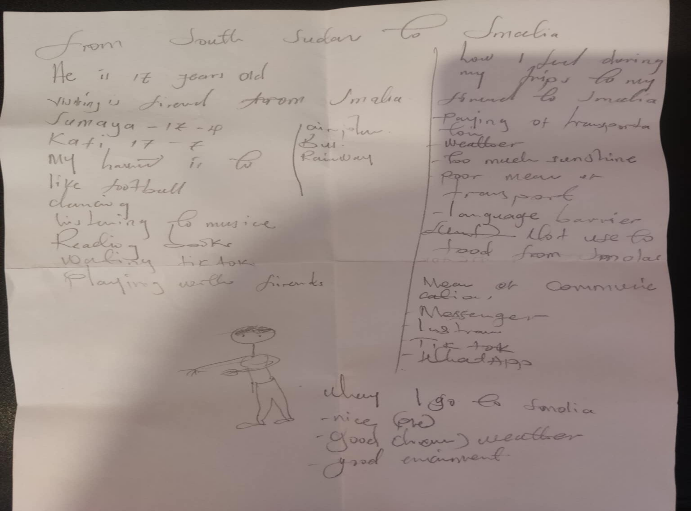 from South Sudan to Smalia
He is 17 years old
visiting is firend from Smalia
Sumaya - 17 -
Kati, 17 -
My is to
like football
dancing
listening to musice
Reading books
Making tic tok
Playing withe friends
airplan
Bus
Railway
how I feel during
my trips to my
firend to Smalia
- Paying of transporta
tion
- weather
- Too much sunshine
- Poor mean of
transport
- language barrier
- Not use to
food from Smalia
Mean of Communic
cation,
- Messenger
- Instram
- Tik tok
- WhatApp
I go to Smalia
- nice
- Good weather
- good